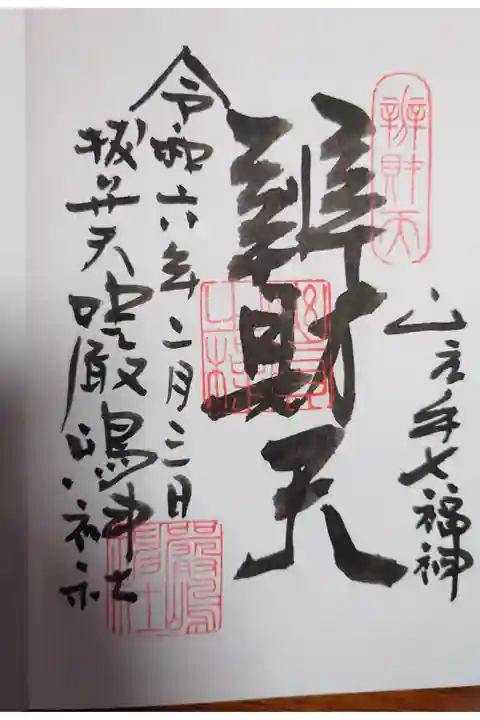 辨財天
山之手七福神
辨財天
令和六年二月三日
抜弁天嚴嶋神社
嚴嶋神社